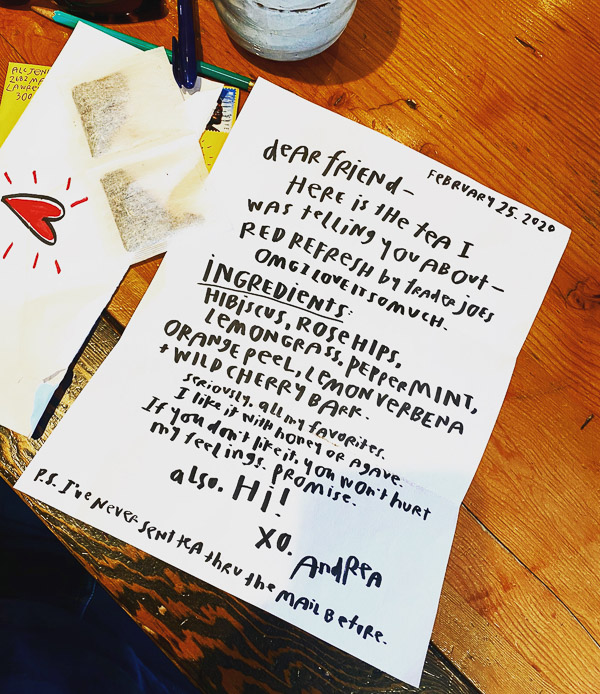 FEBRUARY 25. 2020
dEAR FRiENd-
HERE is the tEA I
WAS tElliNG YOU ABOUt-
RED REFRESH by tRAdER JOES
OMG I LOVE IT SO MUCH.
iNGREDiENtS:
HIBiSCUS, ROSE HIPS,
LEMONGRASS, PEPPERMINT,
ORANGE PEEL, LEMON VERBENA
+ WILD CHERRY BARK.
SERiOUSly, all my favorites.
I like it with honey or agave.
If you don't like it, you won't hurt
my feelings. promise.
also. Hi!
XO.
ANdREA
P.S. I'VE NEVER SENt tEA thru the MAIL BEfORE.
ALCJEN
300